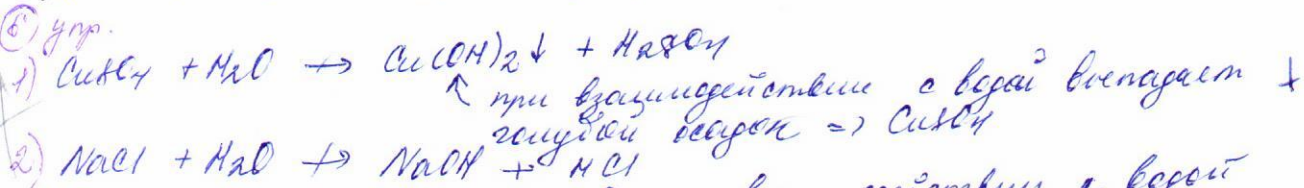 6) упр.
1) CuSO4 + H2O → Cu(OH)2↓ + H2SO4
↖ при взаимодействии с водой выпадает ↓
голубой осадок => CuSO4
2) NaCl + H2O ↛ NaOH + HCl
с водой